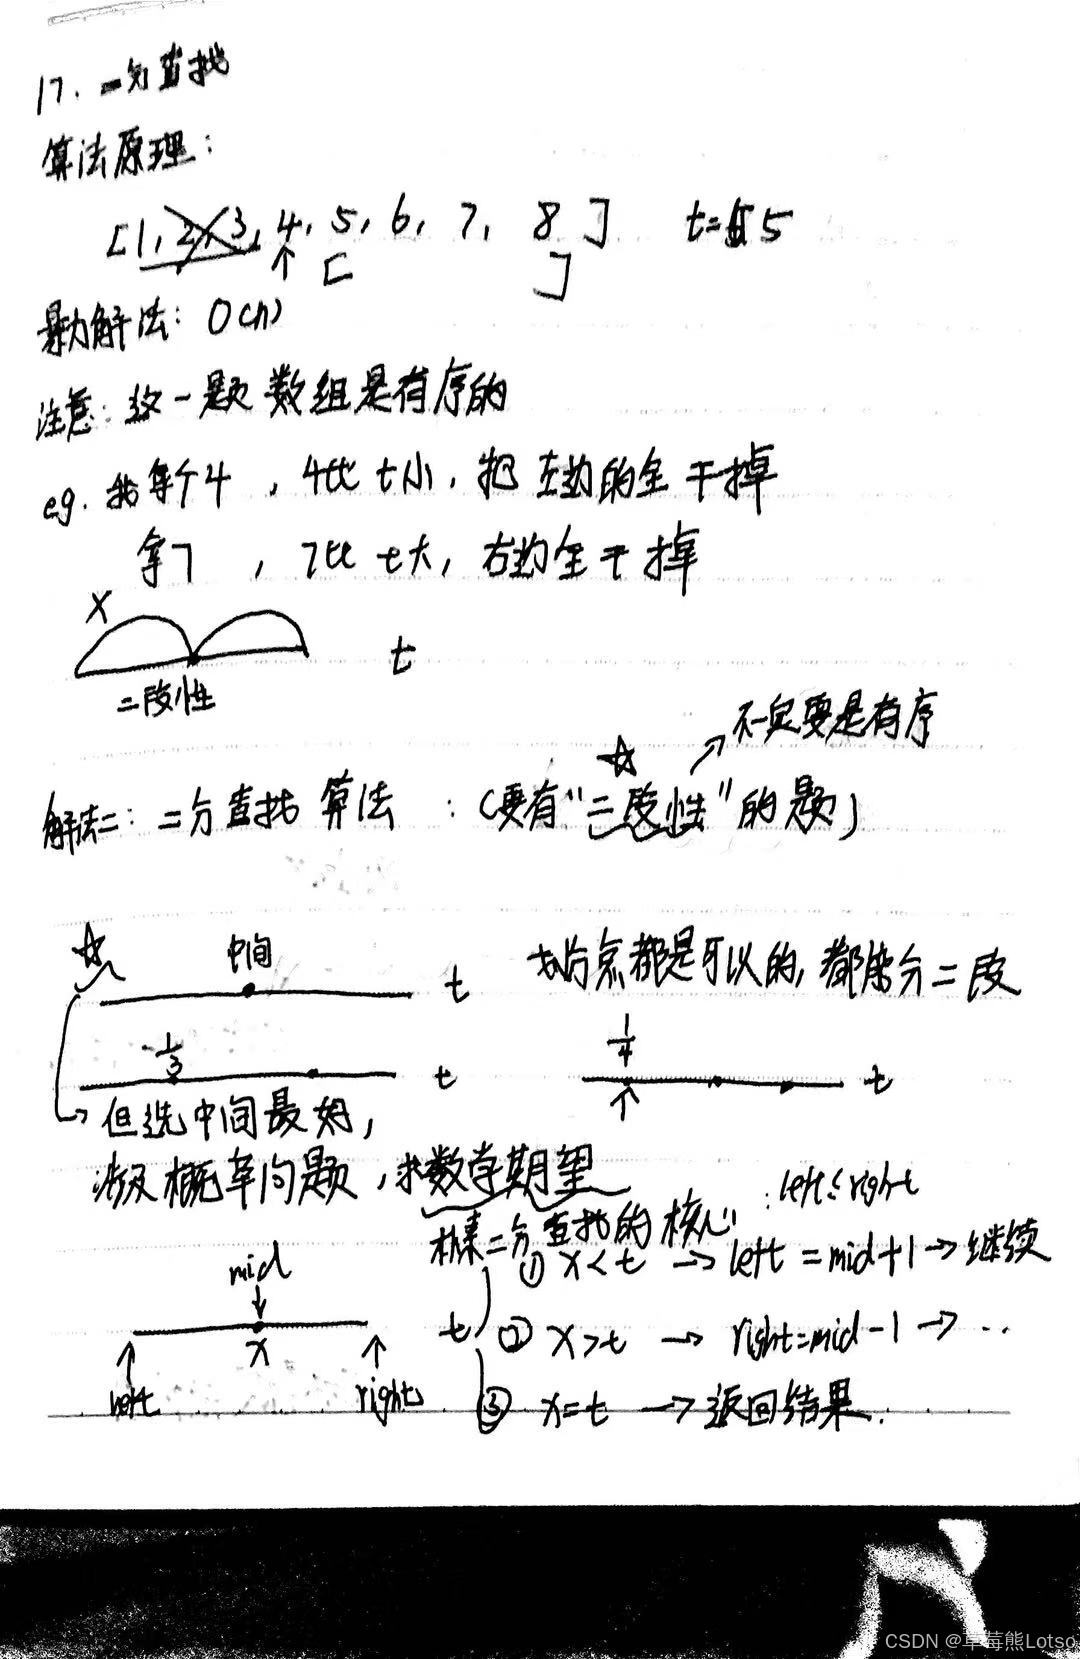 17. 二分查找
算法原理:
[1, 2, 3, 4, 5, 6, 7, 8] t=5
[ ]
暴力解法: O(n)
注意: 这一题 数组是有序的
eg. 我拿个4 , 4比 t小, 把 左边的全 干掉
拿7 , 7比 t大, 右边全 干 掉
X
t
二段性
不一定要是有序
解法二: 二分查找 算法 : (要有"二段性"的题)
中间
t
划分点都是可以的, 都能分二段
1/3
t
1/4
t
但选中间最好,
涉及概率问题, 求数学期望
朴素二分查找的核心: left≤right
mid
x
left
right
t
① x<t → left=mid+1→继续
② x>t → right=mid-1→…
③ x=t → 返回结果.
CSDN @草莓熊Lotso